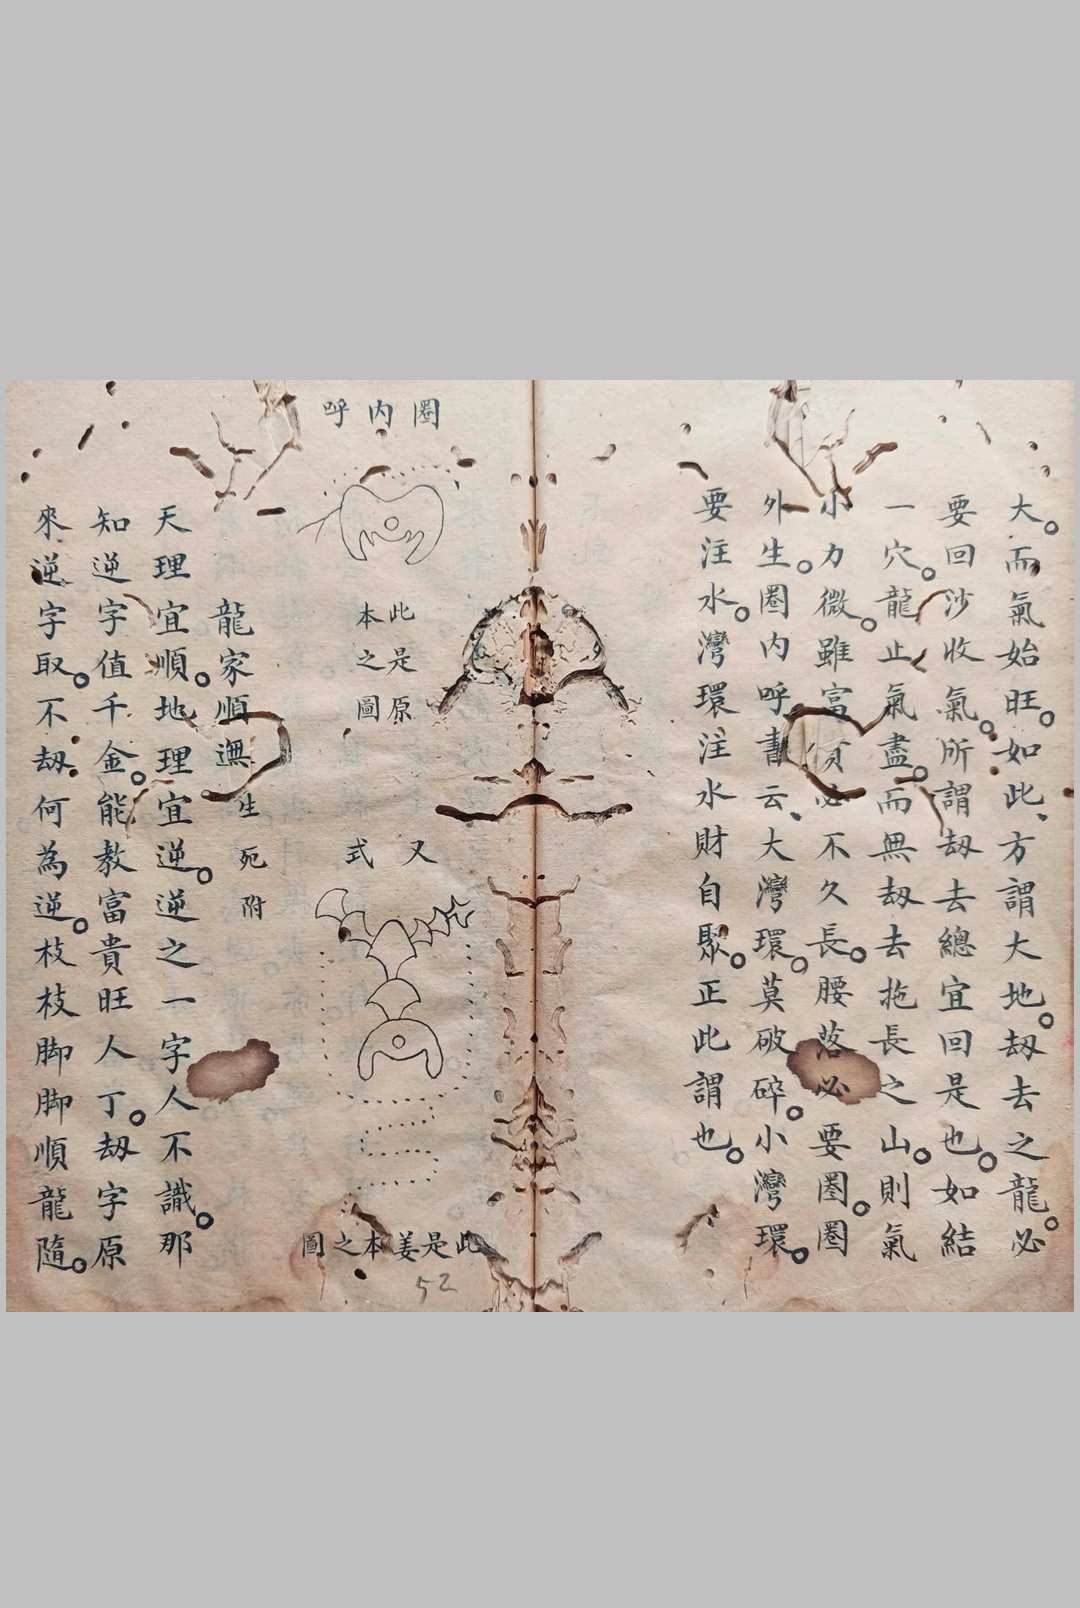 大。而氣始旺。如此、方謂大地。刼去之龍。必
要回沙收氣。所謂刼去總宜回是也。如結
一穴。龍止氣盡。而無刼去拖長之山。則氣
小力微。雖富必不久長。腰落必要圈。圈
外生。圈內呼。書云、大灣環。莫破碎。小灣環。
要注水。灣環注水財自聚。正此謂也。
圈內呼
此是原
本之圖
又式
此是姜本之圖
52
龍家順 生死附
天理宜順。地理宜逆。逆之一字人不識。那
知逆字值千金。能教富貴旺人丁。刼字原
來逆字取。不刼何為逆。枝枝脚脚順龍隨。